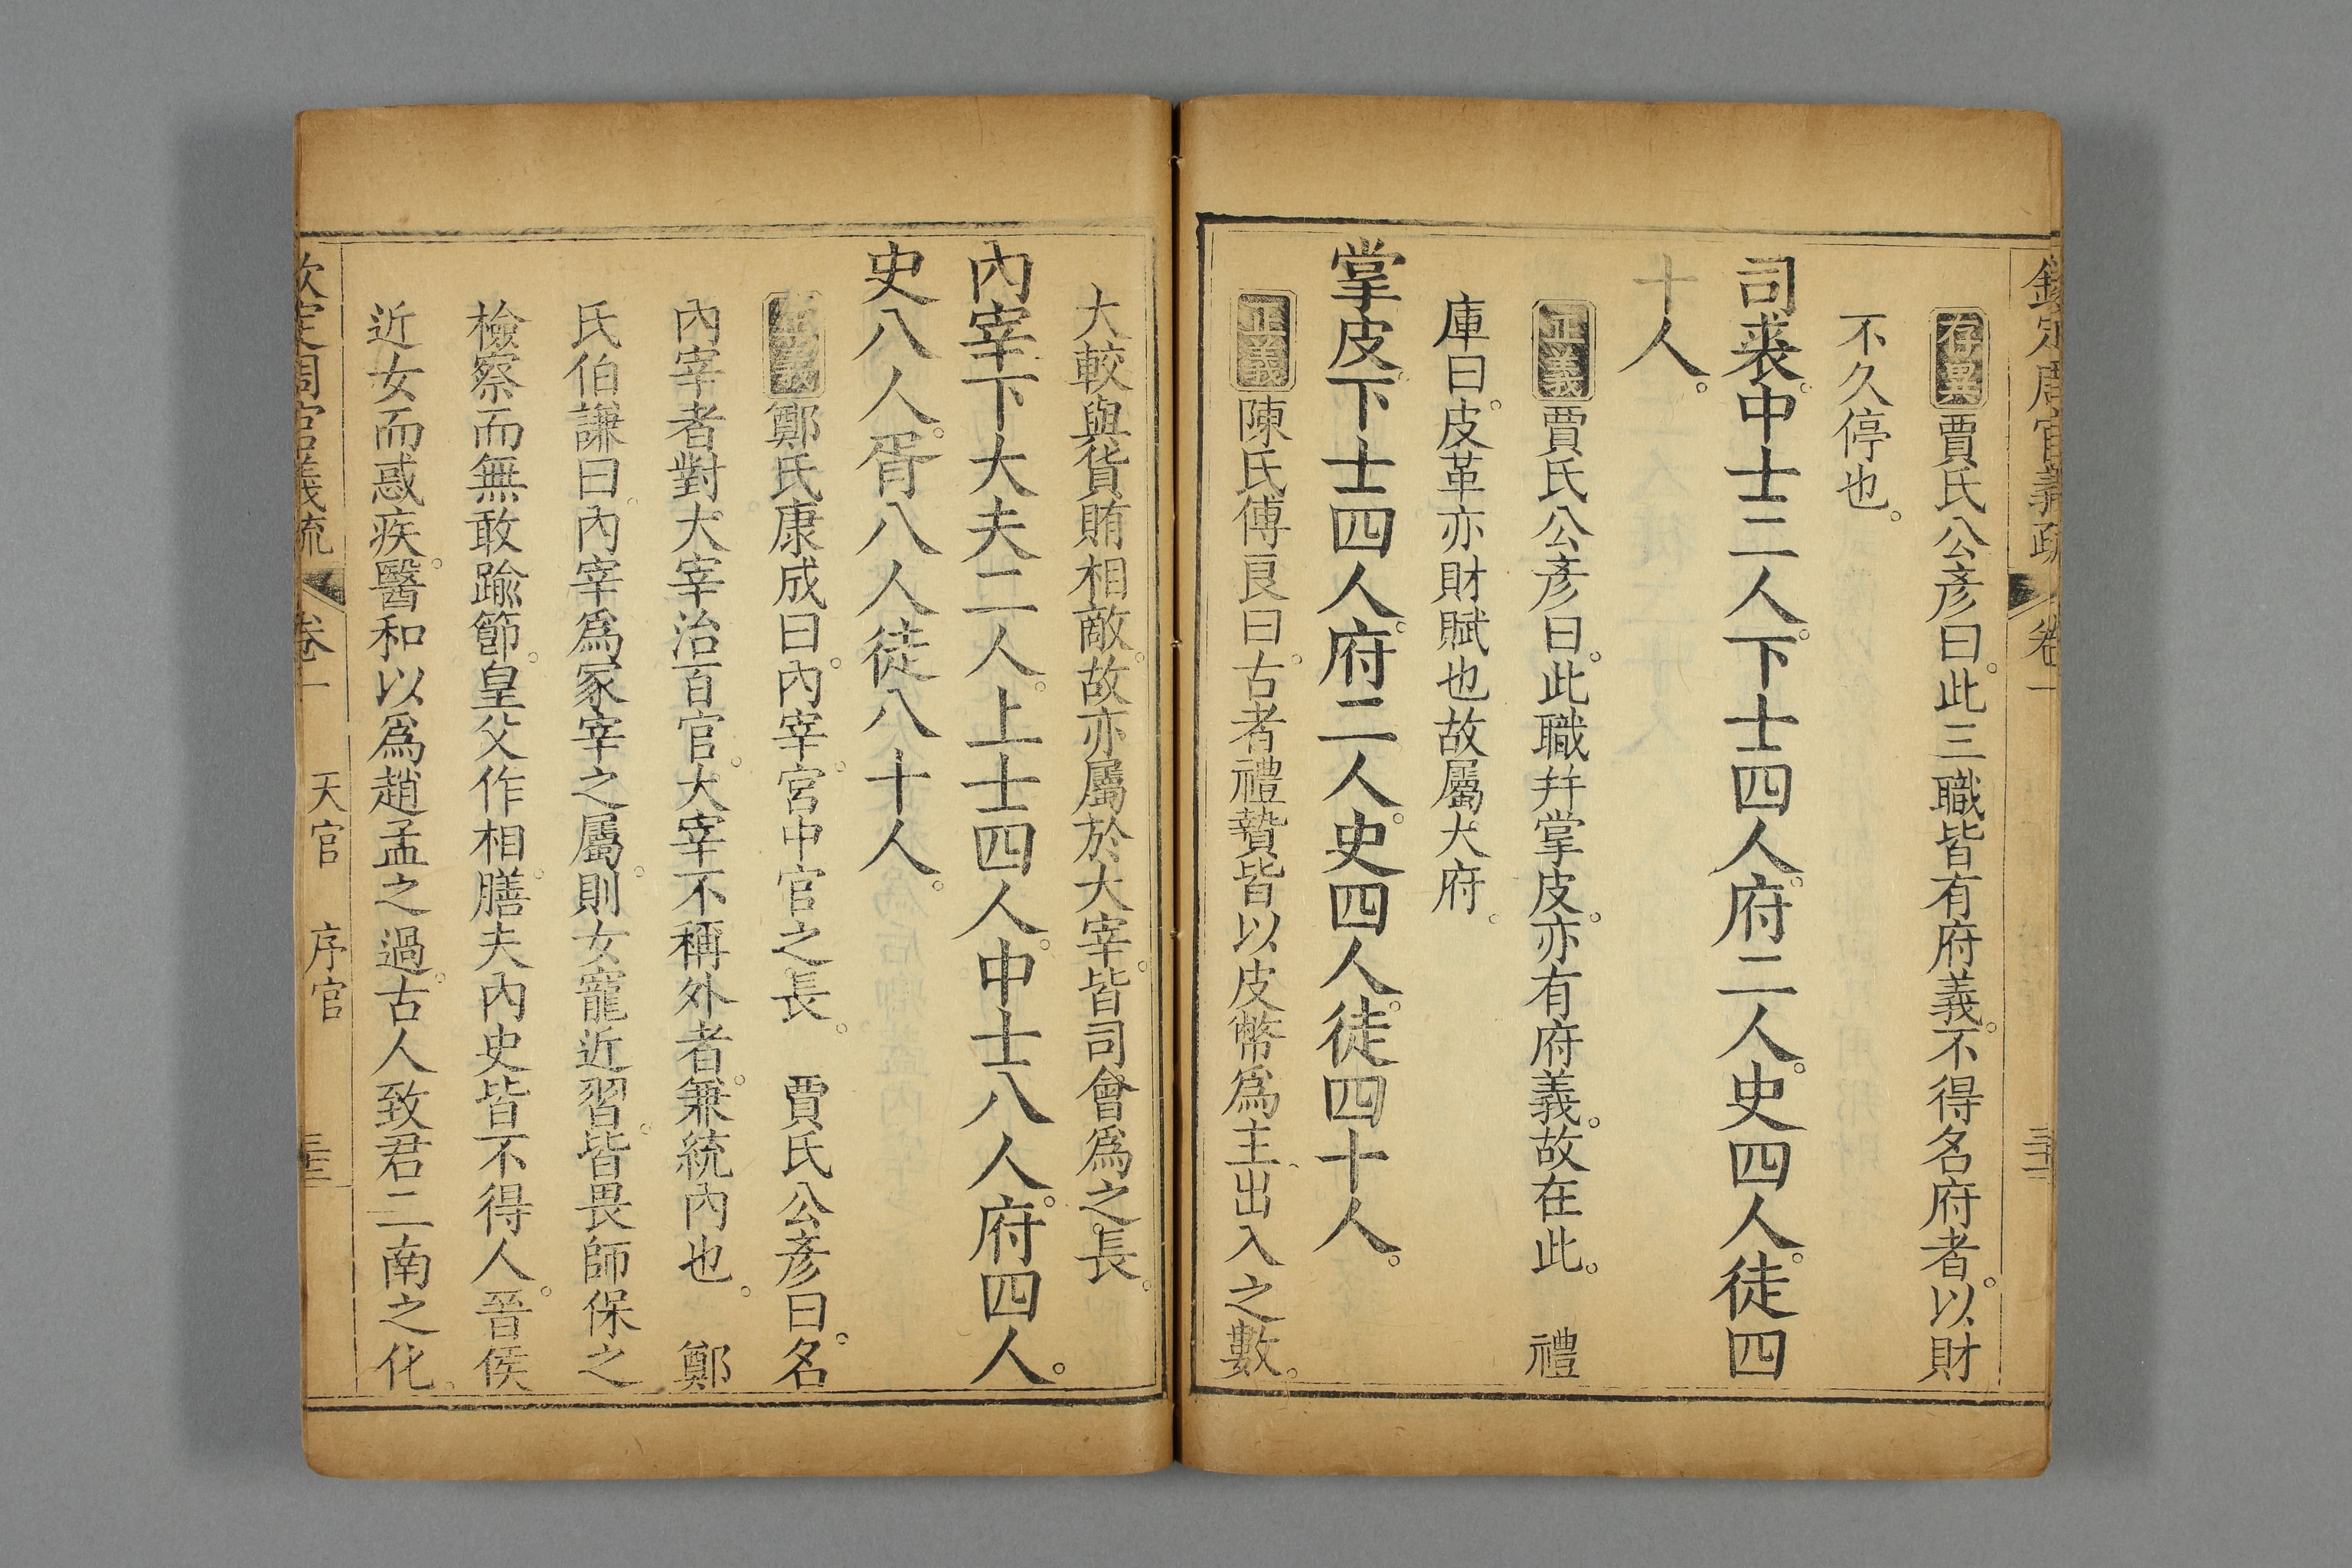 欽定周官義疏 卷一
存異 賈氏公彥曰。此三職皆有府義。不得名府者。以財
不久停也。
司裘。中士二人。下士四人。府二人。史四人。徒四
十人。
正義 賈氏公彥曰。此職幷掌皮。亦有府義。故在此。 禮
庫曰。皮革亦財賦也故屬大府。
掌皮。下士四人。府二人。史四人。徒四十人。
正義 陳氏傅良曰。古者禮贄皆以皮幣爲主、出入之數。
大較與貨賄相敵。故亦屬於大宰。皆司會爲之長。
內宰下大夫二人。上士四人。中士八人。府四人。
史八人。胥八人徒八十人。
正義 鄭氏康成曰。內宰。宮中官之長。 賈氏公彥曰。名
內宰者對大宰治百官。大宰不稱外者。兼統內也。 鄭
氏伯謙曰。內宰爲冢宰之屬。則女寵近習。皆畏師保之
檢察而無敢踰節。皇父作相。膳夫內史皆不得人。晉侯
近女而惑疾。醫和以爲趙孟之過。古人致君二南之化。
欽定周官義疏 卷一 天官 序官